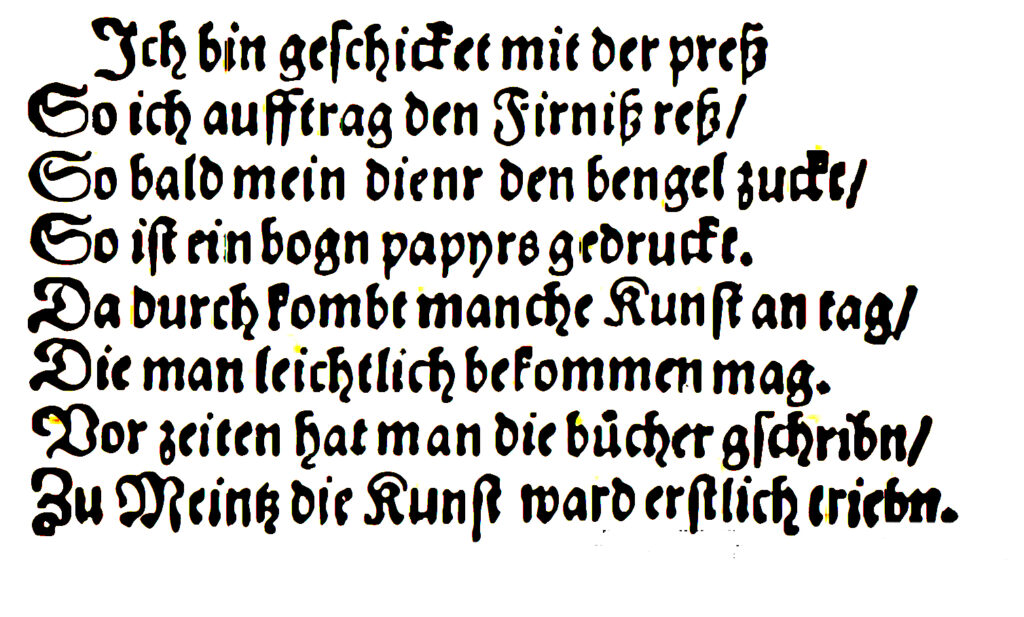 Ich bin geſchicket mit der preß
So ich aufftrag den Firniß reß/
So bald mein dienr den bengel zuckt/
So iſt ein bogn papyrs gedruckt.
Da durch kombt manche Kunſt an tag/
Die man leichtlich bekommen mag.
Vor zeiten hat man die bücher gſchribn/
Zu Meintz die Kunſt ward erſtlich triebn.